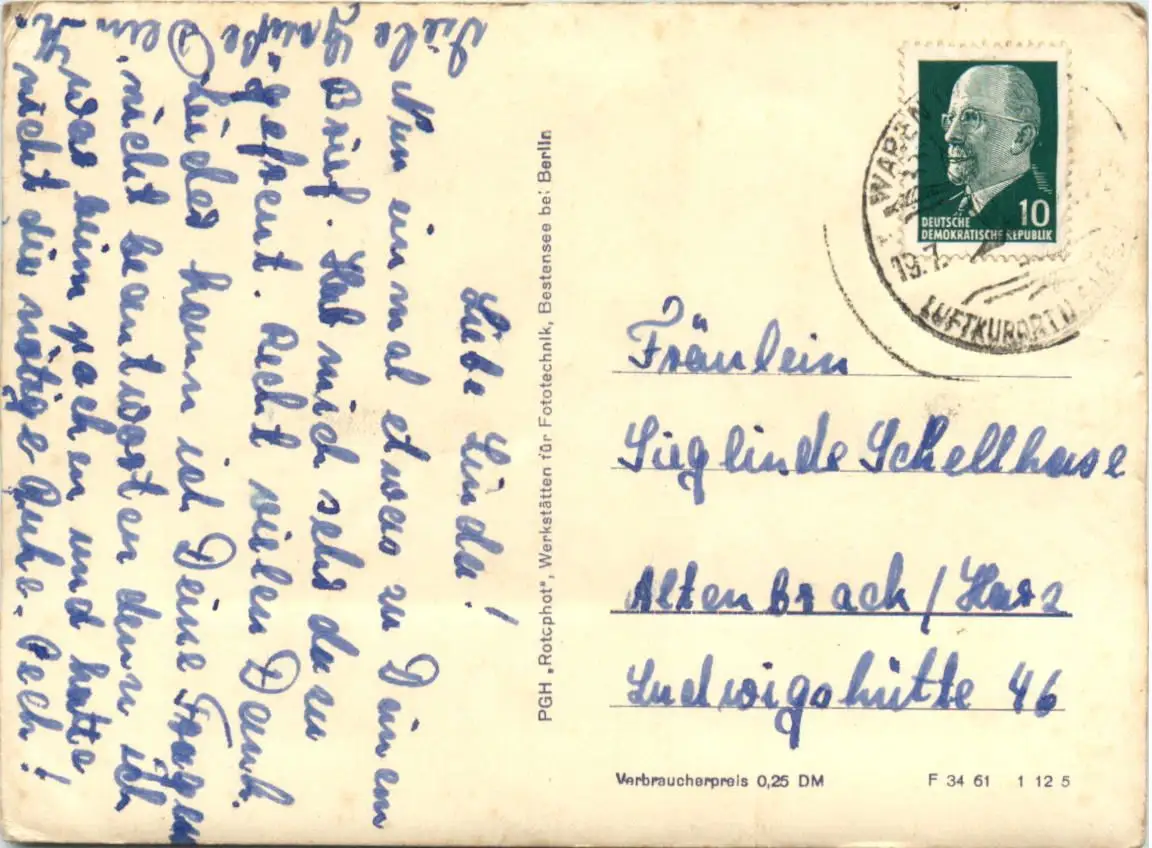 Liebe Linda!
Nun einmal etwas zu Deinem
Brief. Hat mich sehr dazu
gefreut. Recht vielen Dank.
Leider kann ich Deine Fragen
nicht beantworten denn ich
war beim pachen und hatte
nicht die nötige Ruhe. Pech!
Viele
Grüße
Dein
PGH „Rotophot", Werkstätten für Fototechnik, Bestensee bei Berlin
DEUTSCHE
DEMOKRATISCHE REPUBLIK
10
WAREN
19.7.
LUFTKURORT
Fräulein
Sieglinde Schellhase
Altenbrach/Harz
Ludwigshütte 46
Verbraucherpreis 0,25 DM
F 34 61 1 12 5